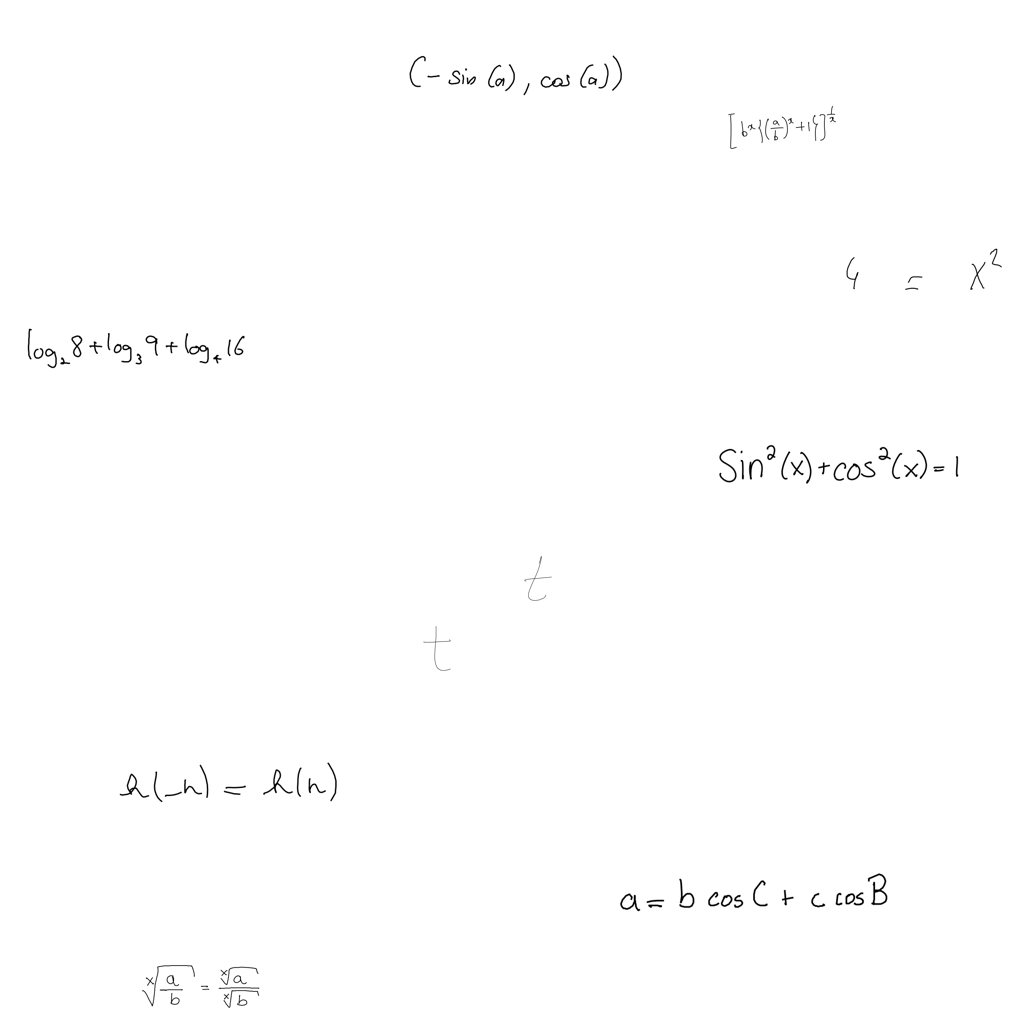 (-sin(a), cos(a))
[b^x{(a/b)^x+1}]^{1/x}
4 = x²
log₂8+log₃9+log₄16
Sin²(x)+cos²(x)=1
t
t
h(-n) = h(n)
a = b cos C + c cos B
ˣ√(a/b) = ˣ√a/ˣ√b